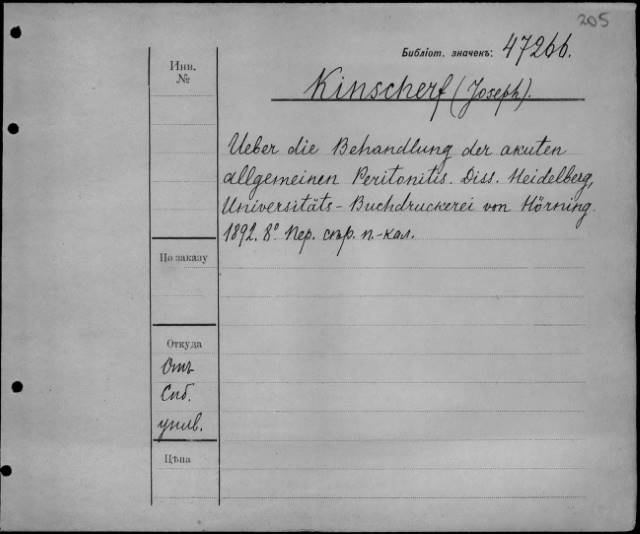 205
Библіот. значекъ: 47266.
Инв. №
Kinscherf (Joseph).
Ueber die Behandlung der akuten
allgemeinen Peritonitis. Diss. Heidelberg,
Universitäts-Buchdruckerei von Hörning.
1892. 8° Пер. стр. п.-кал.
По заказу
Откуда
Отъ
Спб.
унив.
Цѣна